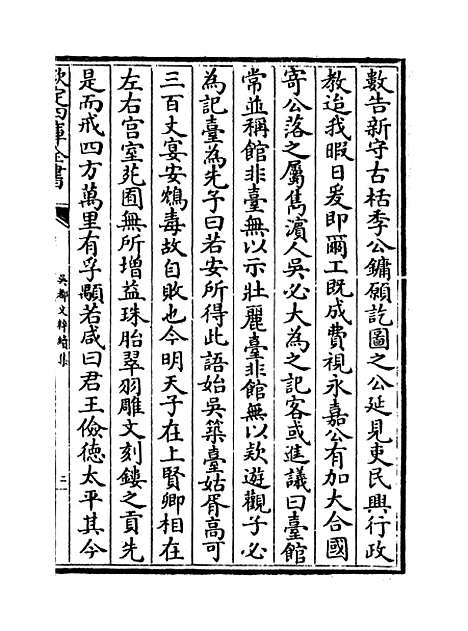 數告新守古栝季公鏞願訖圖之公延見吏民興行政
教迨我暇日爰即爾工既成費視永嘉公有加大合國
寄公落之屬雋濵人吳必大為之記客或進議曰臺館
常並稱館非臺無以示壯麗臺非館無以欵遊觀子必
為記臺為先子曰若安所得此語始吳築臺姑胥高可
三百丈宴安鴆毒故自敗也今明天子在上賢卿相在
左右宫室苑囿無所增益珠胎翠羽雕文刻鏤之貢先
是而戒四方萬里有孚顒若咸曰君王儉徳太平其今
欽定四庫全書
吳都文粹續集
二